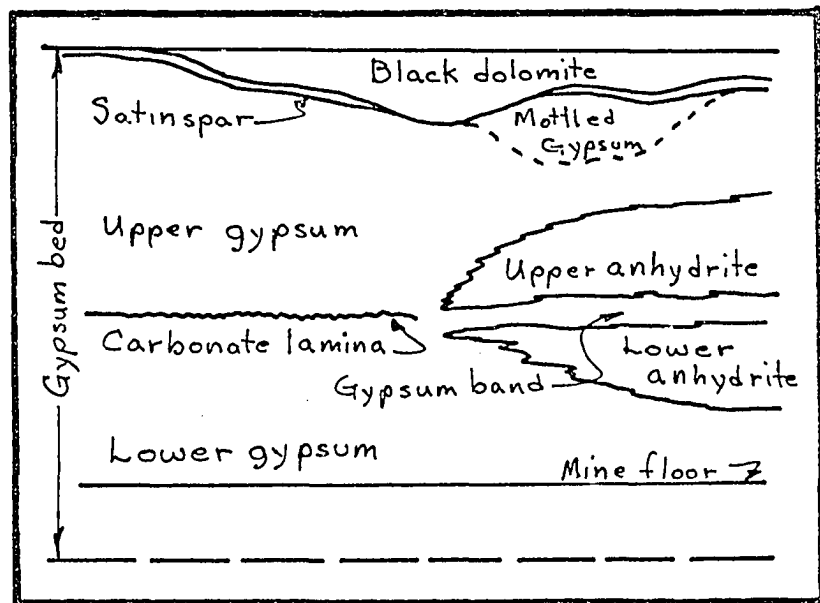 Black dolomite
Satinspar
Mottled
Gypsum
Upper gypsum
Gypsum bed
Upper anhydrite
Carbonate lamina
Lower
anhydrite
Gypsum band
Lower gypsum
Mine floor